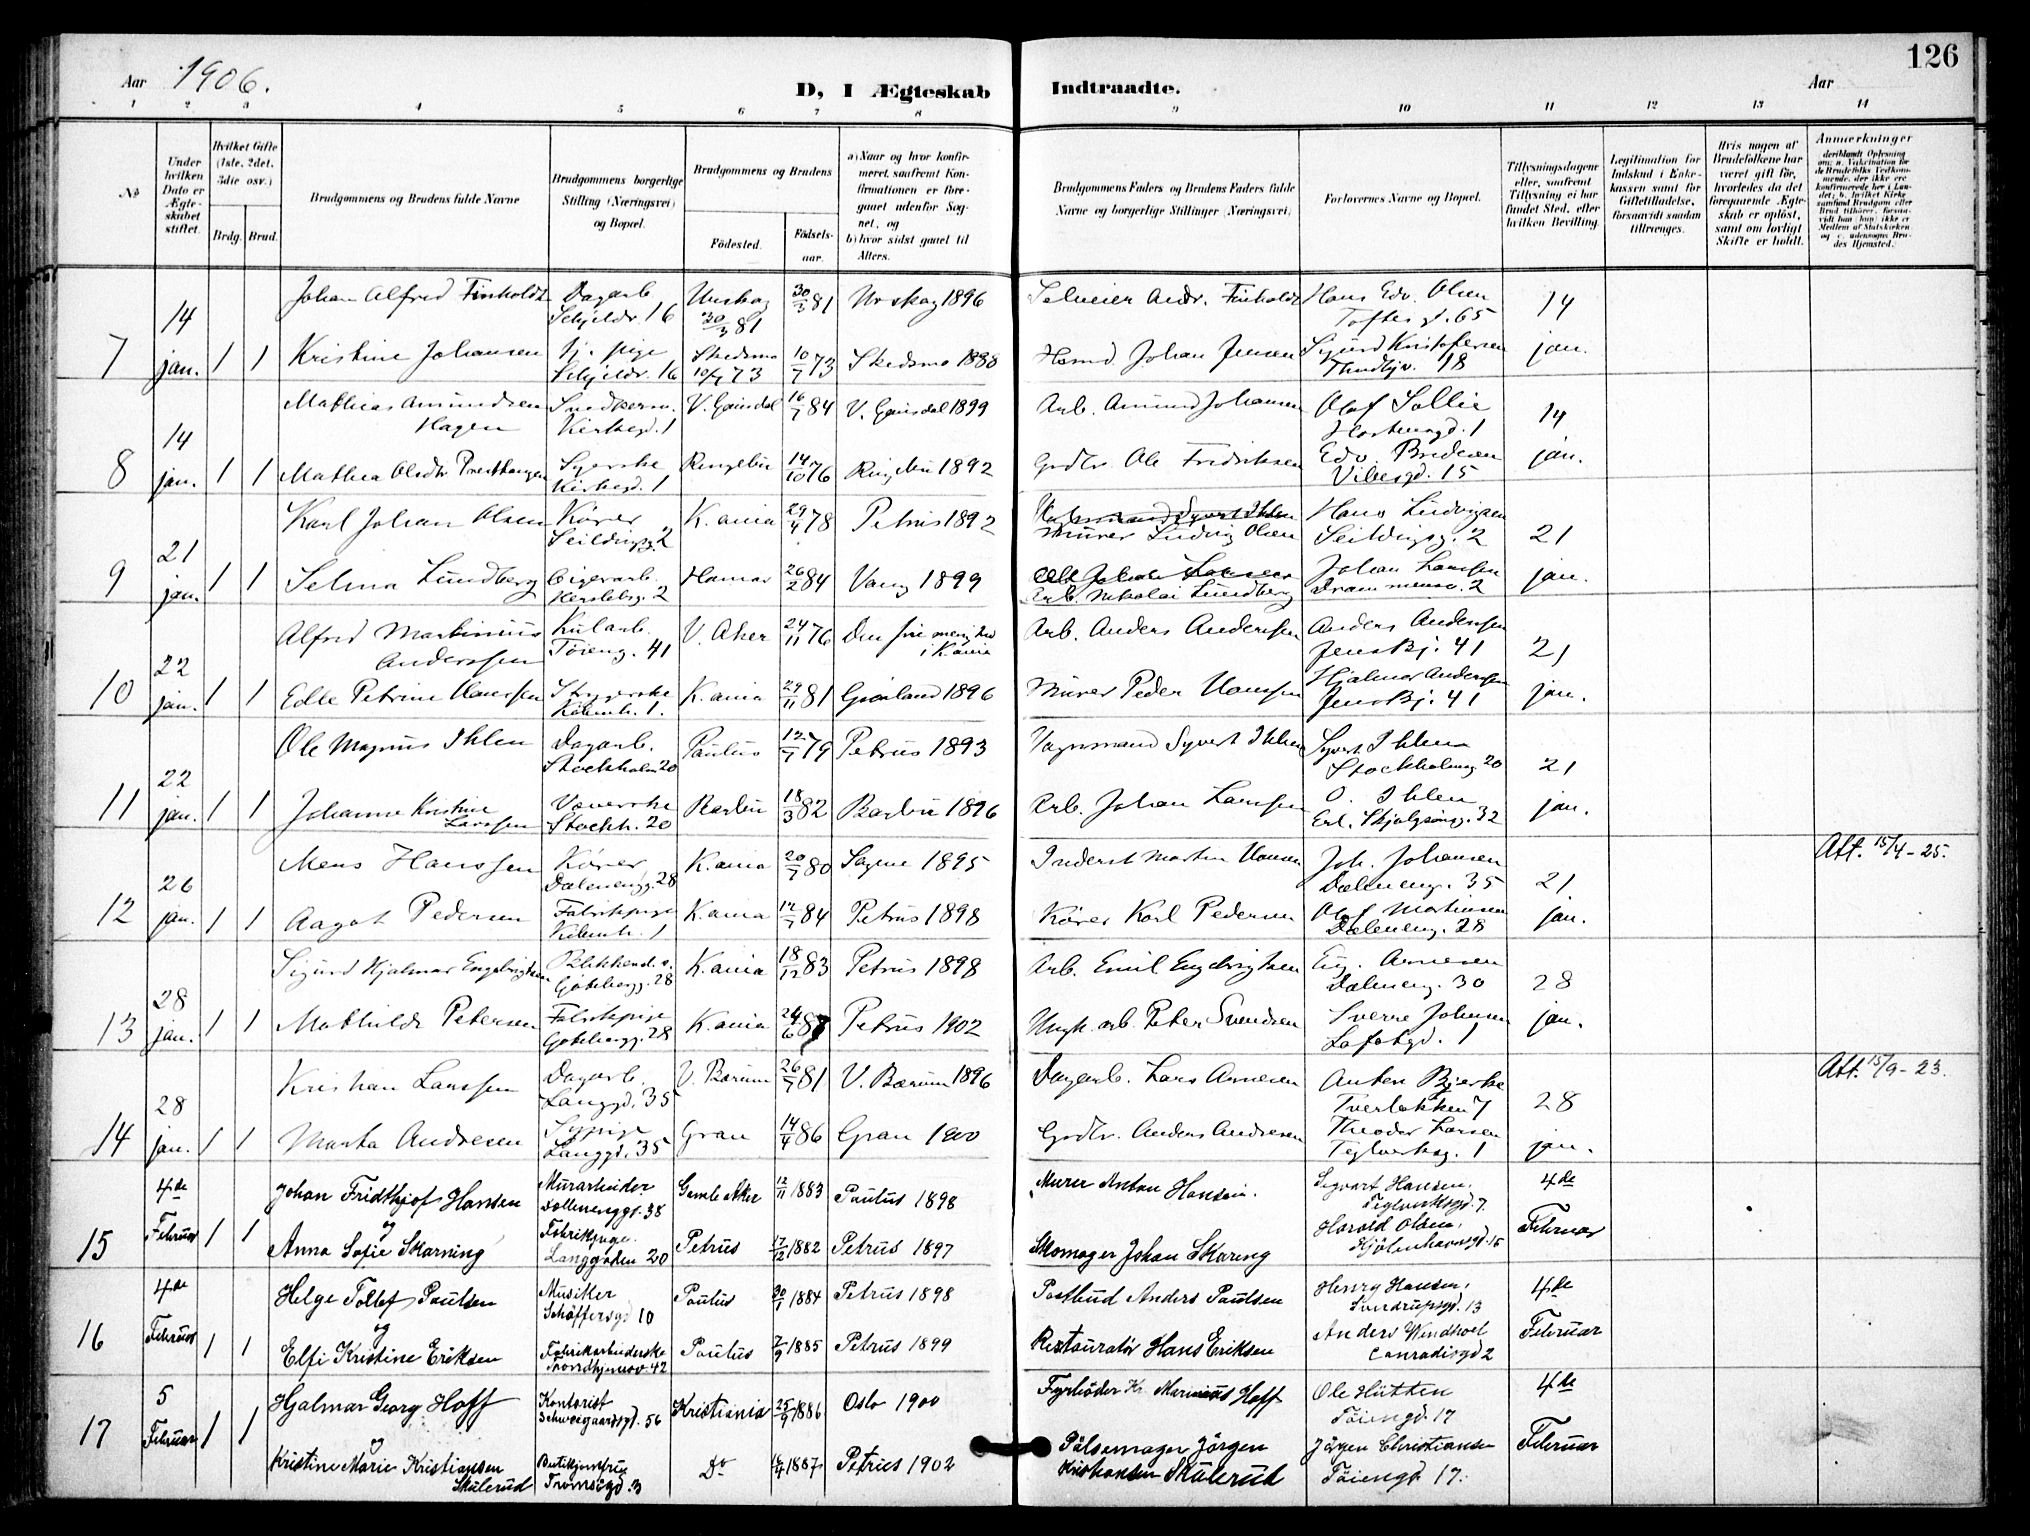 126
Aar 1906.
D, I Ægteskab Indtraadte.
Aar
1 2 3 4 5 6 7 8 9 10 11 12 13 14
No
Under hvilken Dato er Ægteskabet stiftet.
Hvilket Gifte (1ste, 2det, 3die osv.)
Brdg. Brud.
Brudgommens og Brudens fulde Navne
Brudgommens borgerlige Stilling (Næringsvei) og Bopæl.
Brudgommens og Brudens
Födested.
Födselsaar.
a) Naar og hvor konfirmeret, saafremt Konfirmationen er foregaaet udenfor Sognet, og
b) hvor sidst gaaet til Alters.
Brudgommens Faders og Brudens Faders fulde Navne og borgerlige Stillinger (Næringsvei)
Forlovernes Navne og Bopæl.
Tillysningsdagene eller, saafremt Tillysning ei har fundet Sted, efter hvilken Bevilling.
Legitimation for Indskud i Enkekassen samt for Giftetilladelse, forsaavidt saadan tiltrænges.
Hvis nogen af Brudefolkene har været gift før, hvorledes da det foregaaende Ægteskab er opløst, samt om lovligt Skifte er holdt.
Anmærkninger
7 14 jan. 1 1
Johan Alfred Finholdt Dagarb. Schjeldr. 16 Urskog 30/3 81 30/3 81 Urskog 1896 Selveier Andr. Finholdt Hans Edv. Olsen Toftes g. 65 14 jan.
Kristine Johansen tj. pige Schjeldr. 16 Skedsmo 10/7 73 10/7 73 Skedsmo 1888 Johan Jensen Sigurd Kristofersen 18
8 14 jan. 1 1
Mathias Amundsen Hagen Snedkersv. Kirkegd. 1 V. Gausdal 16/7 84 V. Gausdal 1899 Arb. Amund Johansen Olaf Sollie 14 jan.
Mathea Olsdtr. Presthaugen Syerske Kirkegd. 1 Ringebu 14/10 76 Ringebu 1892 Grdbr. Ole Fredriksen Edv. Bredesen Vibesgd. 15
9 21 jan. 1 1
Karl Johan Olsen Kører Seildugsg. 2 K.ania 29/4 78 Petrus 1892 Vognmand Syvert Ihlen Murer Ludvig Olsen Hans Ludvigsen Seildugsg. 2 21 jan.
Selma Lundberg Cigararb. Herslebsg. 2 Hamar 26/2 84 Vang 1899 Arb. Nikolai Lundberg Johan Larssen Drammensv. 2
10 22 jan. 1 1
Alfred Martinius Anderssen Kularb. Tøieng. 41 V. Aker 24/11 76 Den frie menighed i K.ania Arb. Anders Anderssen Anders Anderssen Jens Bj. 41 21 jan.
Edle Petrine Hanssen Strygerske Københ. 1. K.ania 29/11 81 Grønland 1896 Murer Peder Hanssen Hjalmar Anderssen Jens Bj. 41
11 22 jan. 1 1
Ole Magnus Ihlen Dagarb. Stockholmg 20 Paulus 12/7 79 Petrus 1893 Vognmand Syvert Ihlen Syvert Ihlen Stockholmg 20 21 jan.
Johanne Kristine Larssen Væverske Stockh. 20 Barbu 18/3 82 Barbu 1896 Arb. Johan Larssen O. Ihlen Erl. Skjalgsøng. 32
12 26 jan. 1 1
Mens Hanssen Kører Dælenengg. 28 K.ania 20/7 80 Sagene 1895 Inderst Martin Hansen Joh. Johansen Dæleneng. 35 21 jan. Att. 15/4 - 25.
Aagot Pedersen Fabrikpige Københ. 1 K.ania 12/7 84 Petrus 1898 Kører Karl Pedersen Olaf Martinsen Dæleneng. 28
13 28 jan. 1 1
Sigurd Hjalmar Engebrigtsen Blikkensl. s. Gøtebergg. 28 K.ania 18/12 83 Petrus 1898 Arb. Emil Engebrigtsen Eug. Arnesen Dæleneng. 30 28 jan.
Mathilde Petersen Fabrikpige Gøtebergg. 28 K.ania 24/6 87 Petrus 1902 Peter Svendsen Sverre Johnsen Lofotgd. 1
14 28 jan. 1 1
Kristian Larssen Dagarb. Langgd. 35 V. Bærum 26/7 81 V. Bærum 1896 Dagarb. Lars Arnesen Anton Bjerke Tverbakken 7 28 jan. Att. 15/9 - 23.
Marta Andresen Sypige Langgd. 35 Gran 14/4 86 Gran 1900 Grdbr. Anders Andresen Theodor Larsen Teglverksg. 1
15 4de Februar 1 1
Johan Fridthjof Hansen og Murarbeider Dællenenggt. 38 Gamle Aker 12/11 1883 Paulus 1898 Murer Anton Hansen. Sigvart Hansen. Teglverksgd. 7 4de Februar
Anna Sofie Skarning Fabrikpige. Langgaden 20 Petrus 17/12 1882 Petrus 1897 Skomager Johan Skaring Harald Olsen, Kjöbenhavnsgd. 15
16 4de Februar 1 1
Helge Tollef Paulsen og Musiker Schäffersgd 10 Paulus 30/1 1884 Petrus 1898 Postbud Anders Paulsen Henry Hansen, Sverdrupsgd. 13 4de Februar
Elfi Kristine Eriksen Fabrikarbeiderske Trondhjemsv. 42 Paulus 7/9 1885 Petrus 1899 Restauratör Hans Eriksen Anders Windhoel Conradisgd 2
17 5 Februar 1 1
Hjalmar Georg Hoff og Kontorist Schweigaardsgd. 56 Kristiania 25/9 1886 Oslo 1900 Fyrböder Kr. Marinius Hoff Ole Hütten Töiengd. 17 4de Februar
Kristine Marie Kristiansen Skulerud Butikjomfru Tromsögd. 3 Do 16/4 1887 Petrus 1902 Pölsemager Jörgen Kristiansen Skulerud Jörgen Christiansen Töiengd. 17.